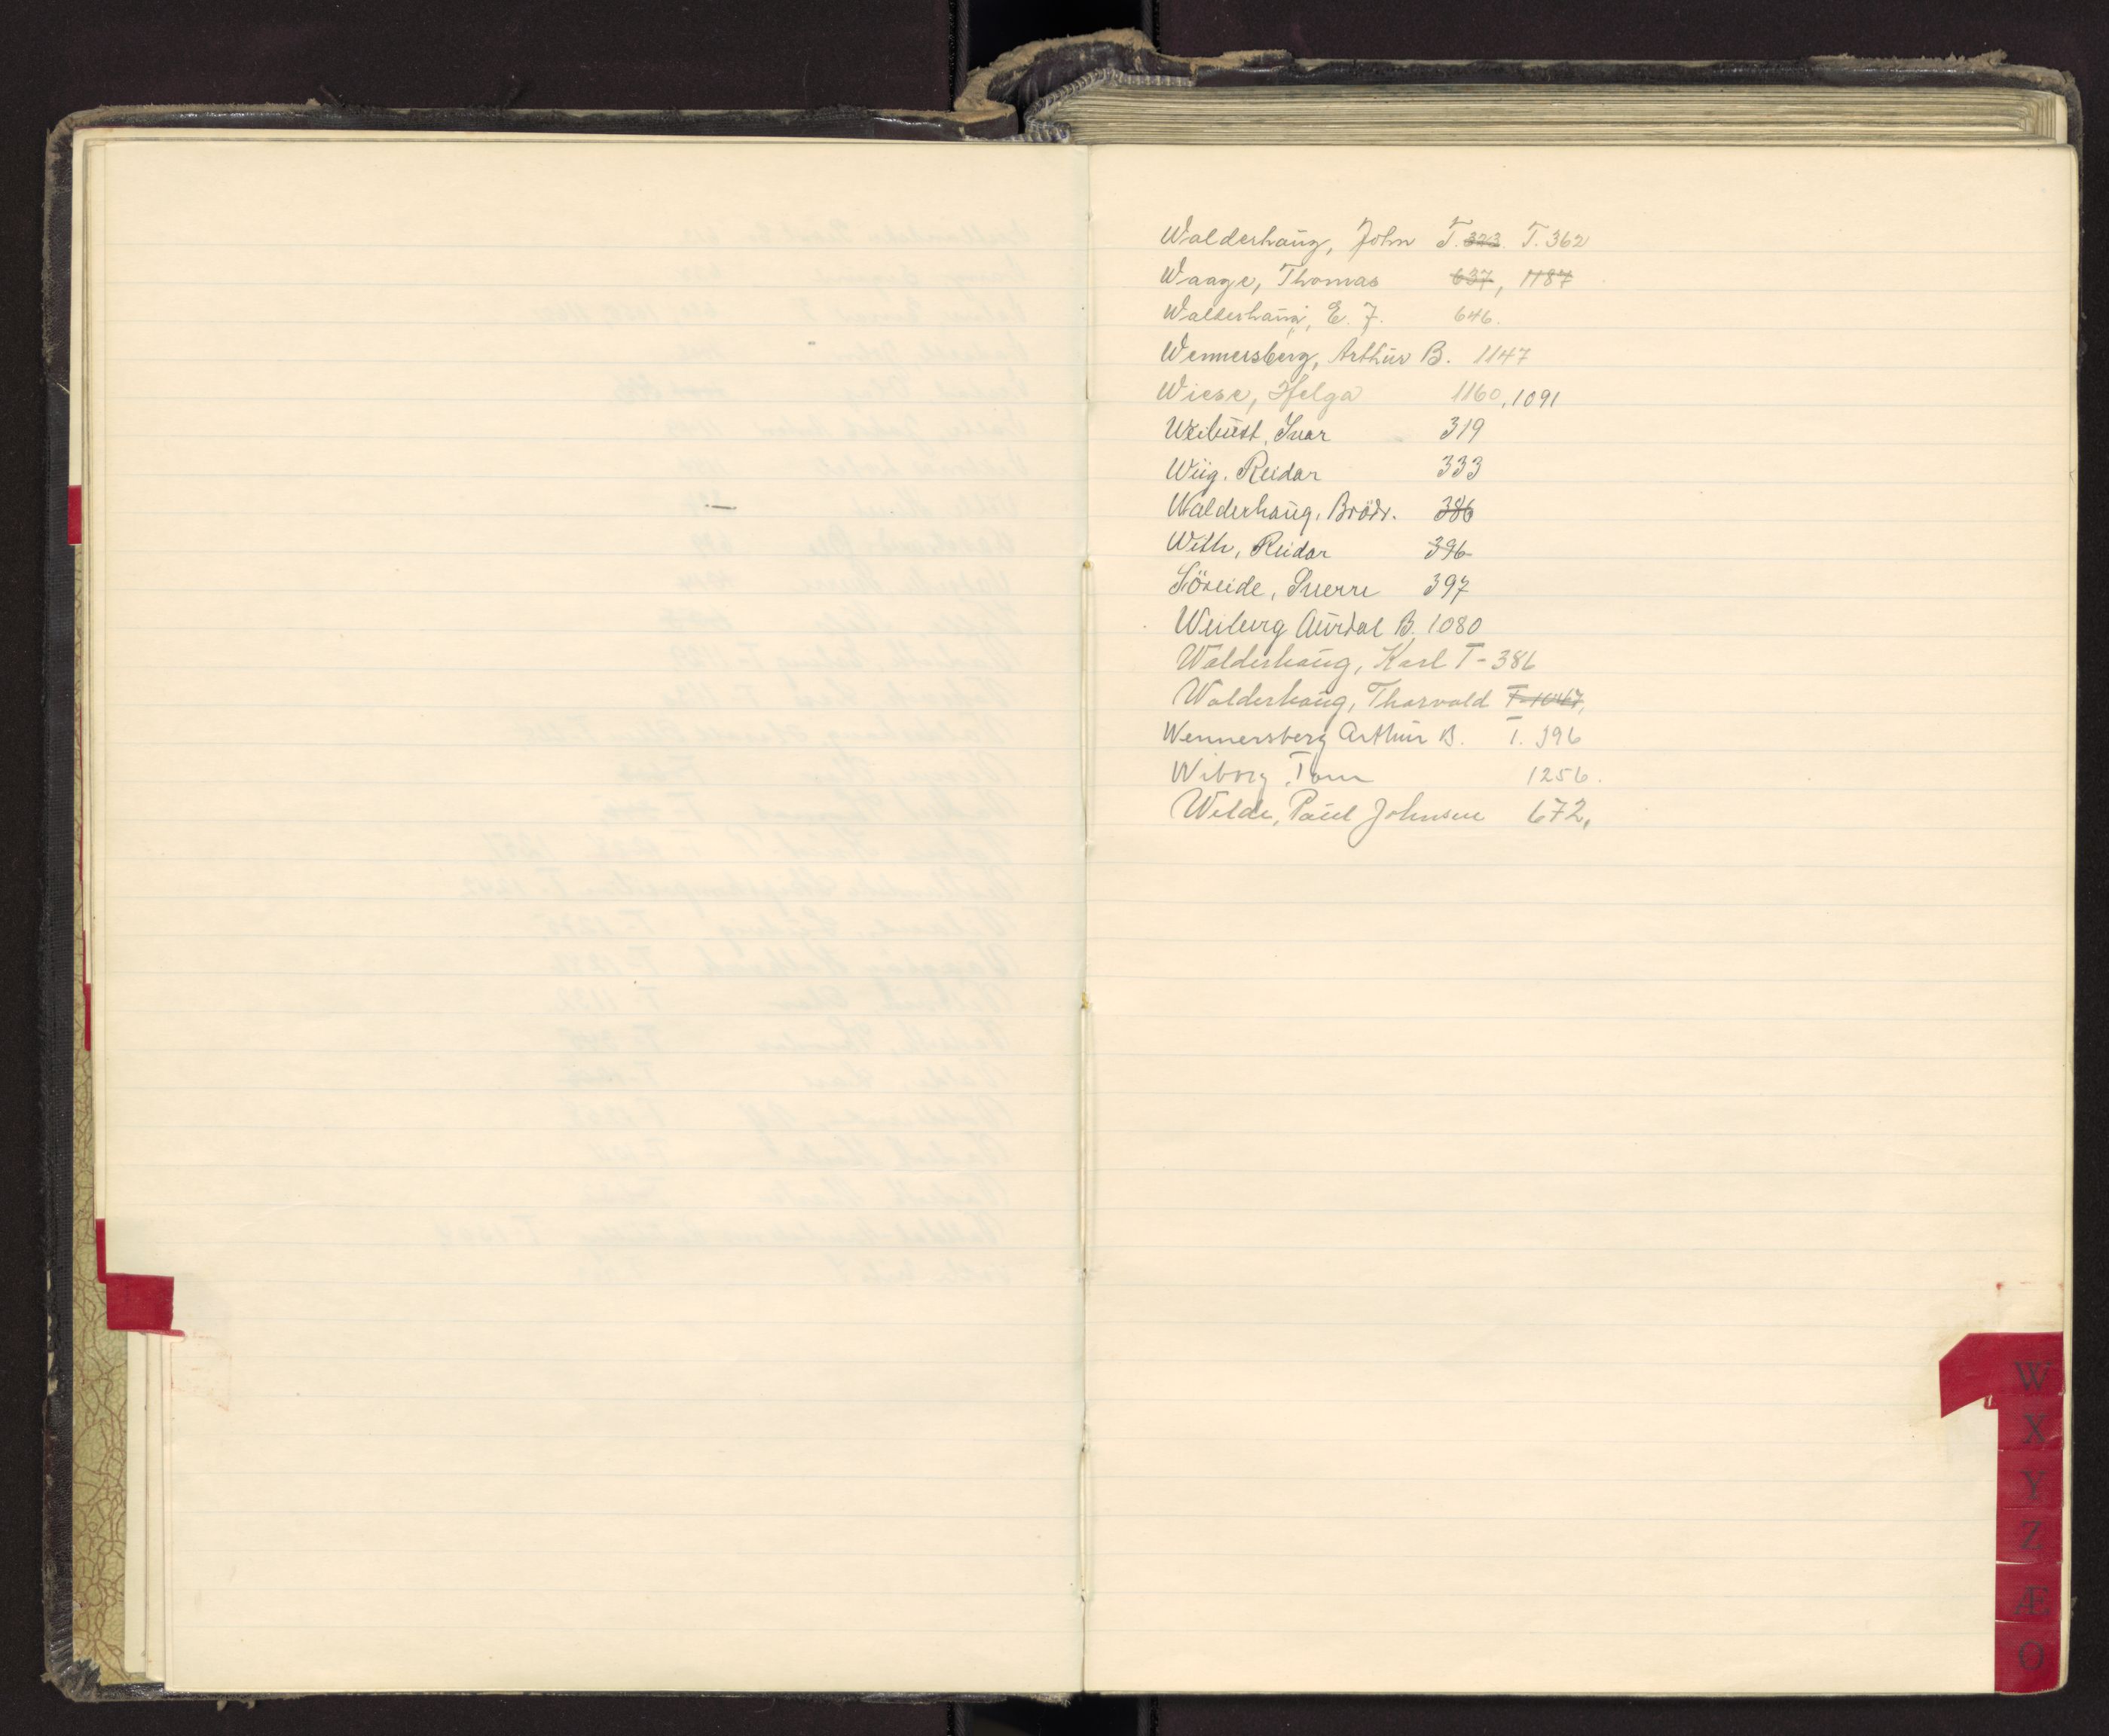 Walderhaug, John T. 323. T. 362
Waage, Thomas 637, 1187
Walderhaug, E. J. 646.
Wennersberg, Arthur B. 1147
Wiese, Helga 1160, 1091
Weibust, Ivar 319
Wiig. Reidar 333
Walderhaug, Brödr. 386
With, Reidar 396
Löseide, Sverre 397
Weiberg Aurdal B. 1080
Walderhaug, Karl T-386
Walderhaug, Tharvald T-1047,
Wennersberg Arthur B. T. 396
Wiborg, Tom 1256.
Welde, Paul Johnsen 672,
W
X
Y
Z
Æ
O